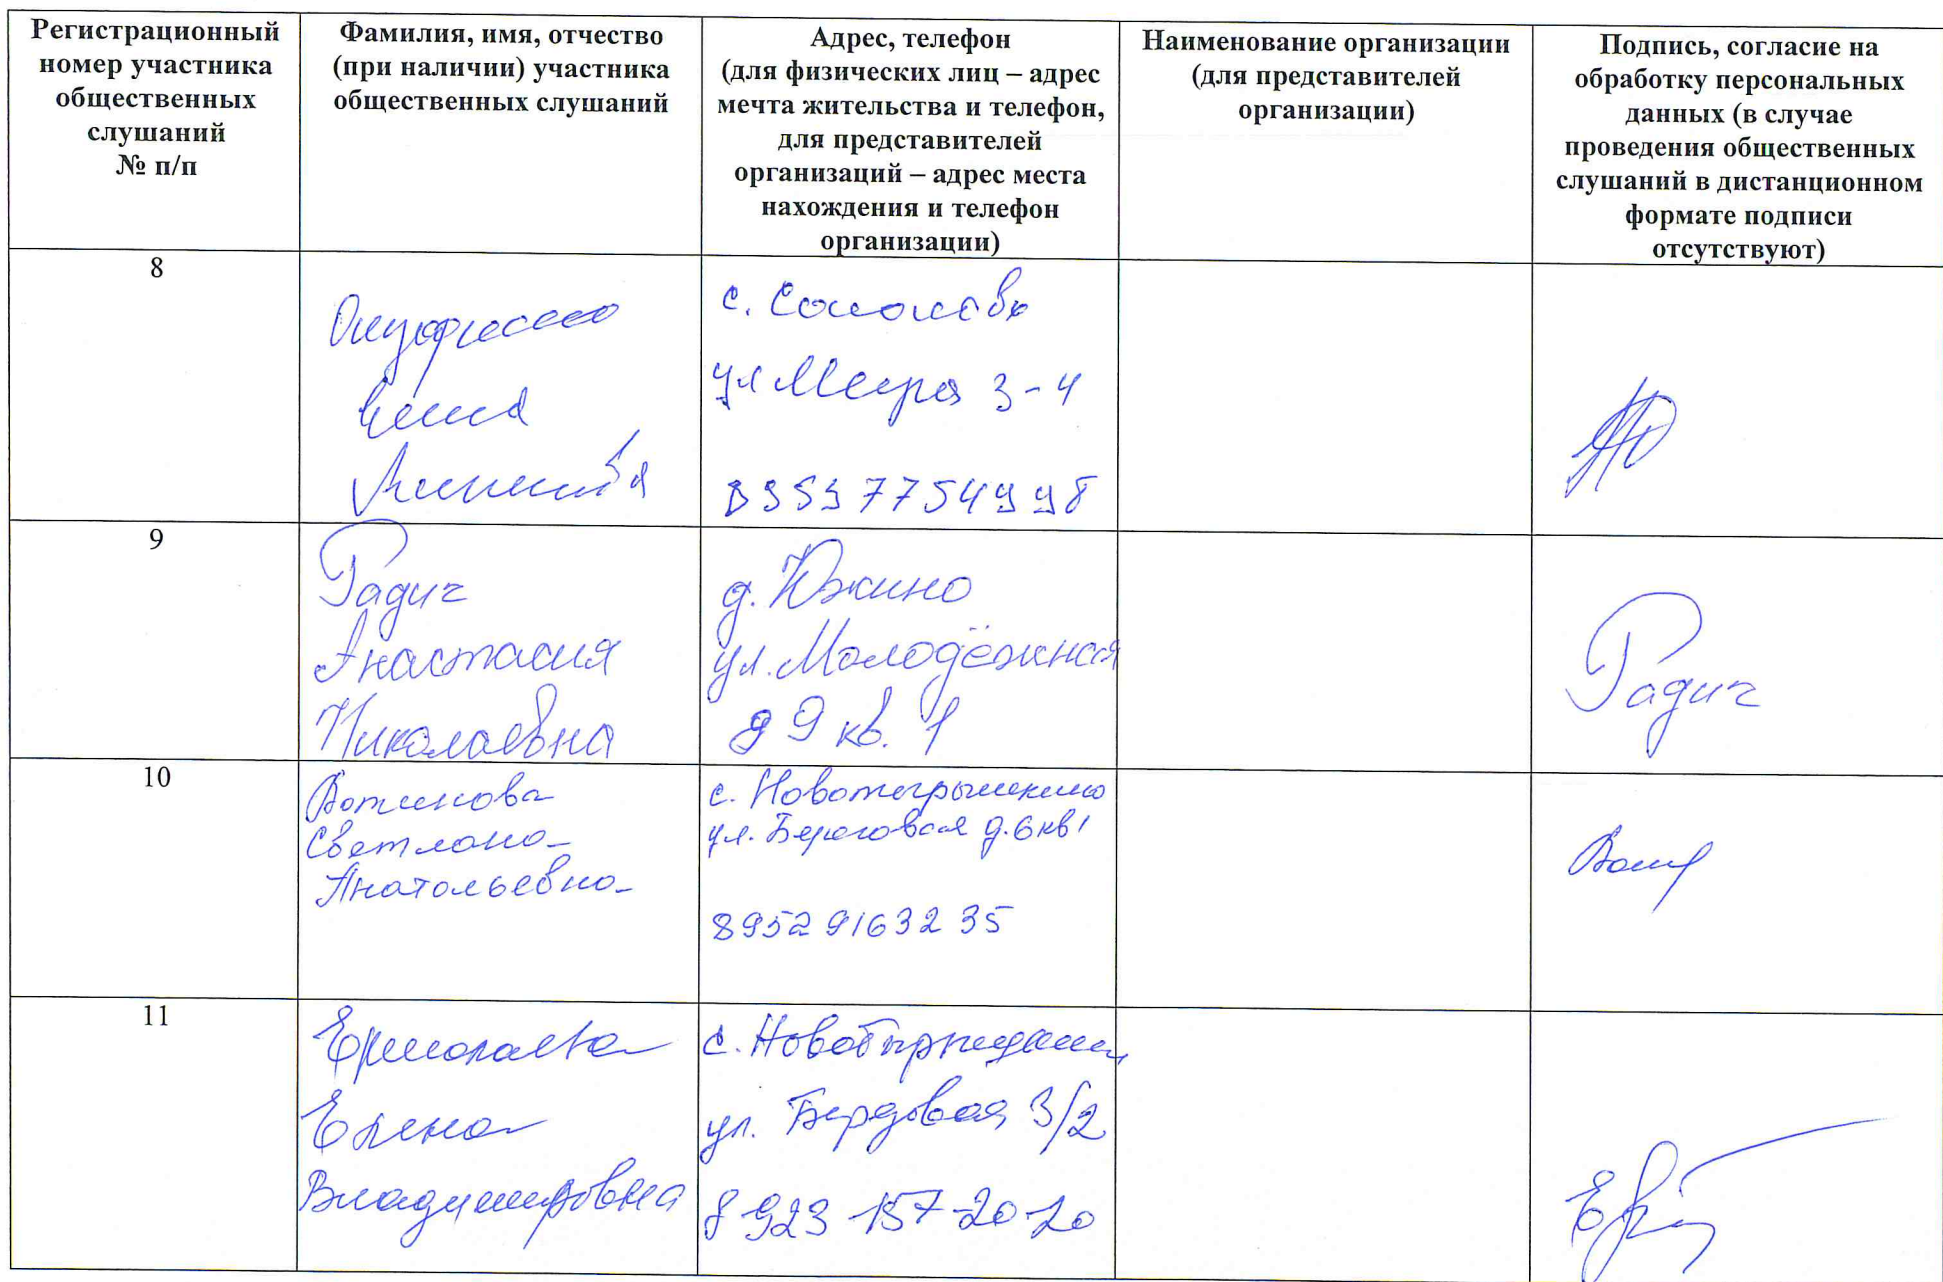 Регистрационный
номер участника
общественных
слушаний
№ п/п
Фамилия, имя, отчество
(при наличии) участника
общественных слушаний
Адрес, телефон
(для физических лиц – адрес
мечта жительства и телефон,
для представителей
организаций – адрес места
нахождения и телефон
организации)
Наименование организации
(для представителей
организации)
Подпись, согласие на
обработку персональных
данных (в случае
проведения общественных
слушаний в дистанционном
формате подписи
отсутствуют)
8
с.
ул Мира 3-4
9
Радич
Анастасия
Николаевна
д. Южино
ул. Молодёжная
д 9 кв. 1
Радич
10
Вотинова
Светлана
Анатольевна
с. Новотырышкино
ул. Береговая д.6 кв1
89529163235
11
Ермолаева
Елена
Владимировна
с.
ул. 3/2
8 923 157-20-20